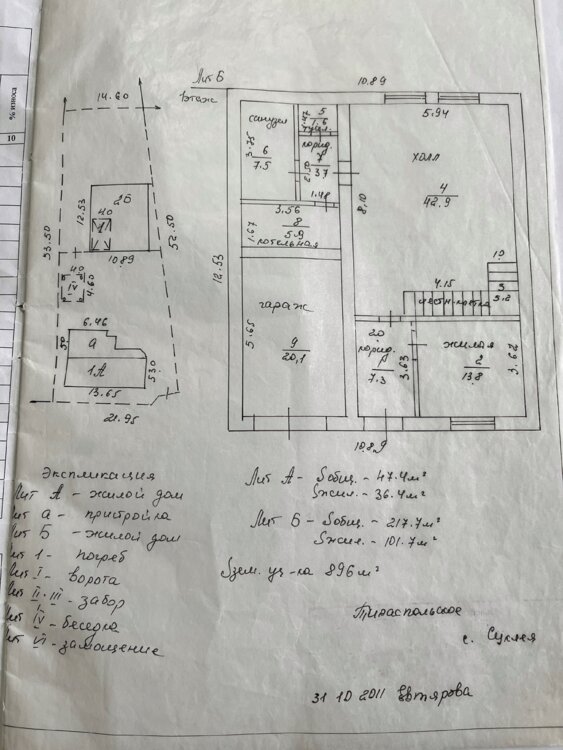 % износа
10
14.60
12.53
2Б
40
1
10.89
53.50
52.50
40
IV
4.60
6.46
а
1А
50
530
13.65
21.95
Лит Б
1этаж
10.89
санузел
3.75
6
7.5
5
1.6
туал.
корид.
7
3.7
1.48
3.56
8
5.9
1.67
котельная
5.94
холл
4
42.9
8.10
12.53
4.15
3
гараж
5.65
9
20,1
20
корид.
1
7.3
3.63
жилая
2
13.8
3.62
10.89
Экспликация
Лит А - жилой дом
Лит а - пристройка
Лит Б - жилой дом
Лит 1 - погреб
Лит I - ворота
Лит II-III - забор
Лит IV - беседка
Лит VI - замощение
Лит А - Sобщ. - 47.4м²
Sжил. - 36.4м²
Лит Б - Sобщ. - 217.7м²
Sжил. - 101.7м²
Sзем. уч-ка 896м²
Тираспольское
с. Суклея
31 10 2011